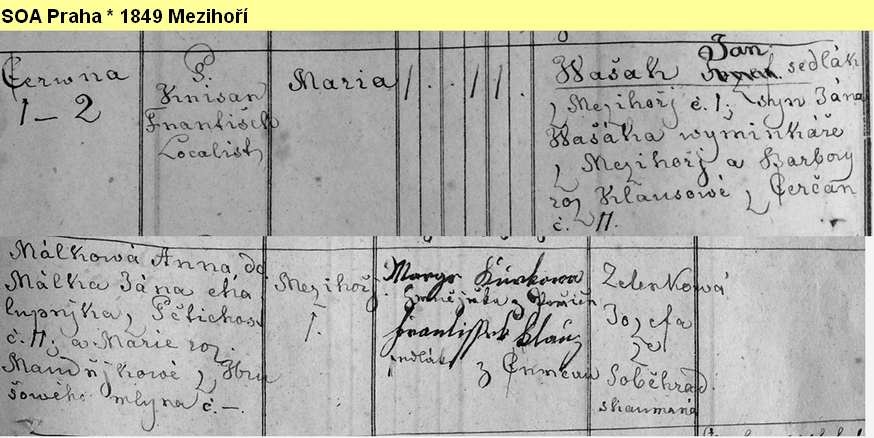 SOA Praha * 1849 Mezihoří
Čerwna
1 - 2
P.
Knisan
Frantisek
Localist
Maria
1 . . 1 1 .
Wašak Jan sedlák
z Mezihořj č. 1, syn Jána
Wašáka wyminkáře
z Mezihořj a Barbory
roz Klausowé z Čerčan
č. 11.
Málkowá Anna, dc
Málka Jána cha
lupnýka z Pětichos
č. 11, a Marie roz.
Mandjkowé z Hbru
šowého mlyna č. -.
Mezihořj
1.
Marya Kurkowa
z Pořičn
Frantissek Klauz
sedlák
z Čerčan
Zelenkowá
Jozefa
ze
Soběhrad
skaumaná